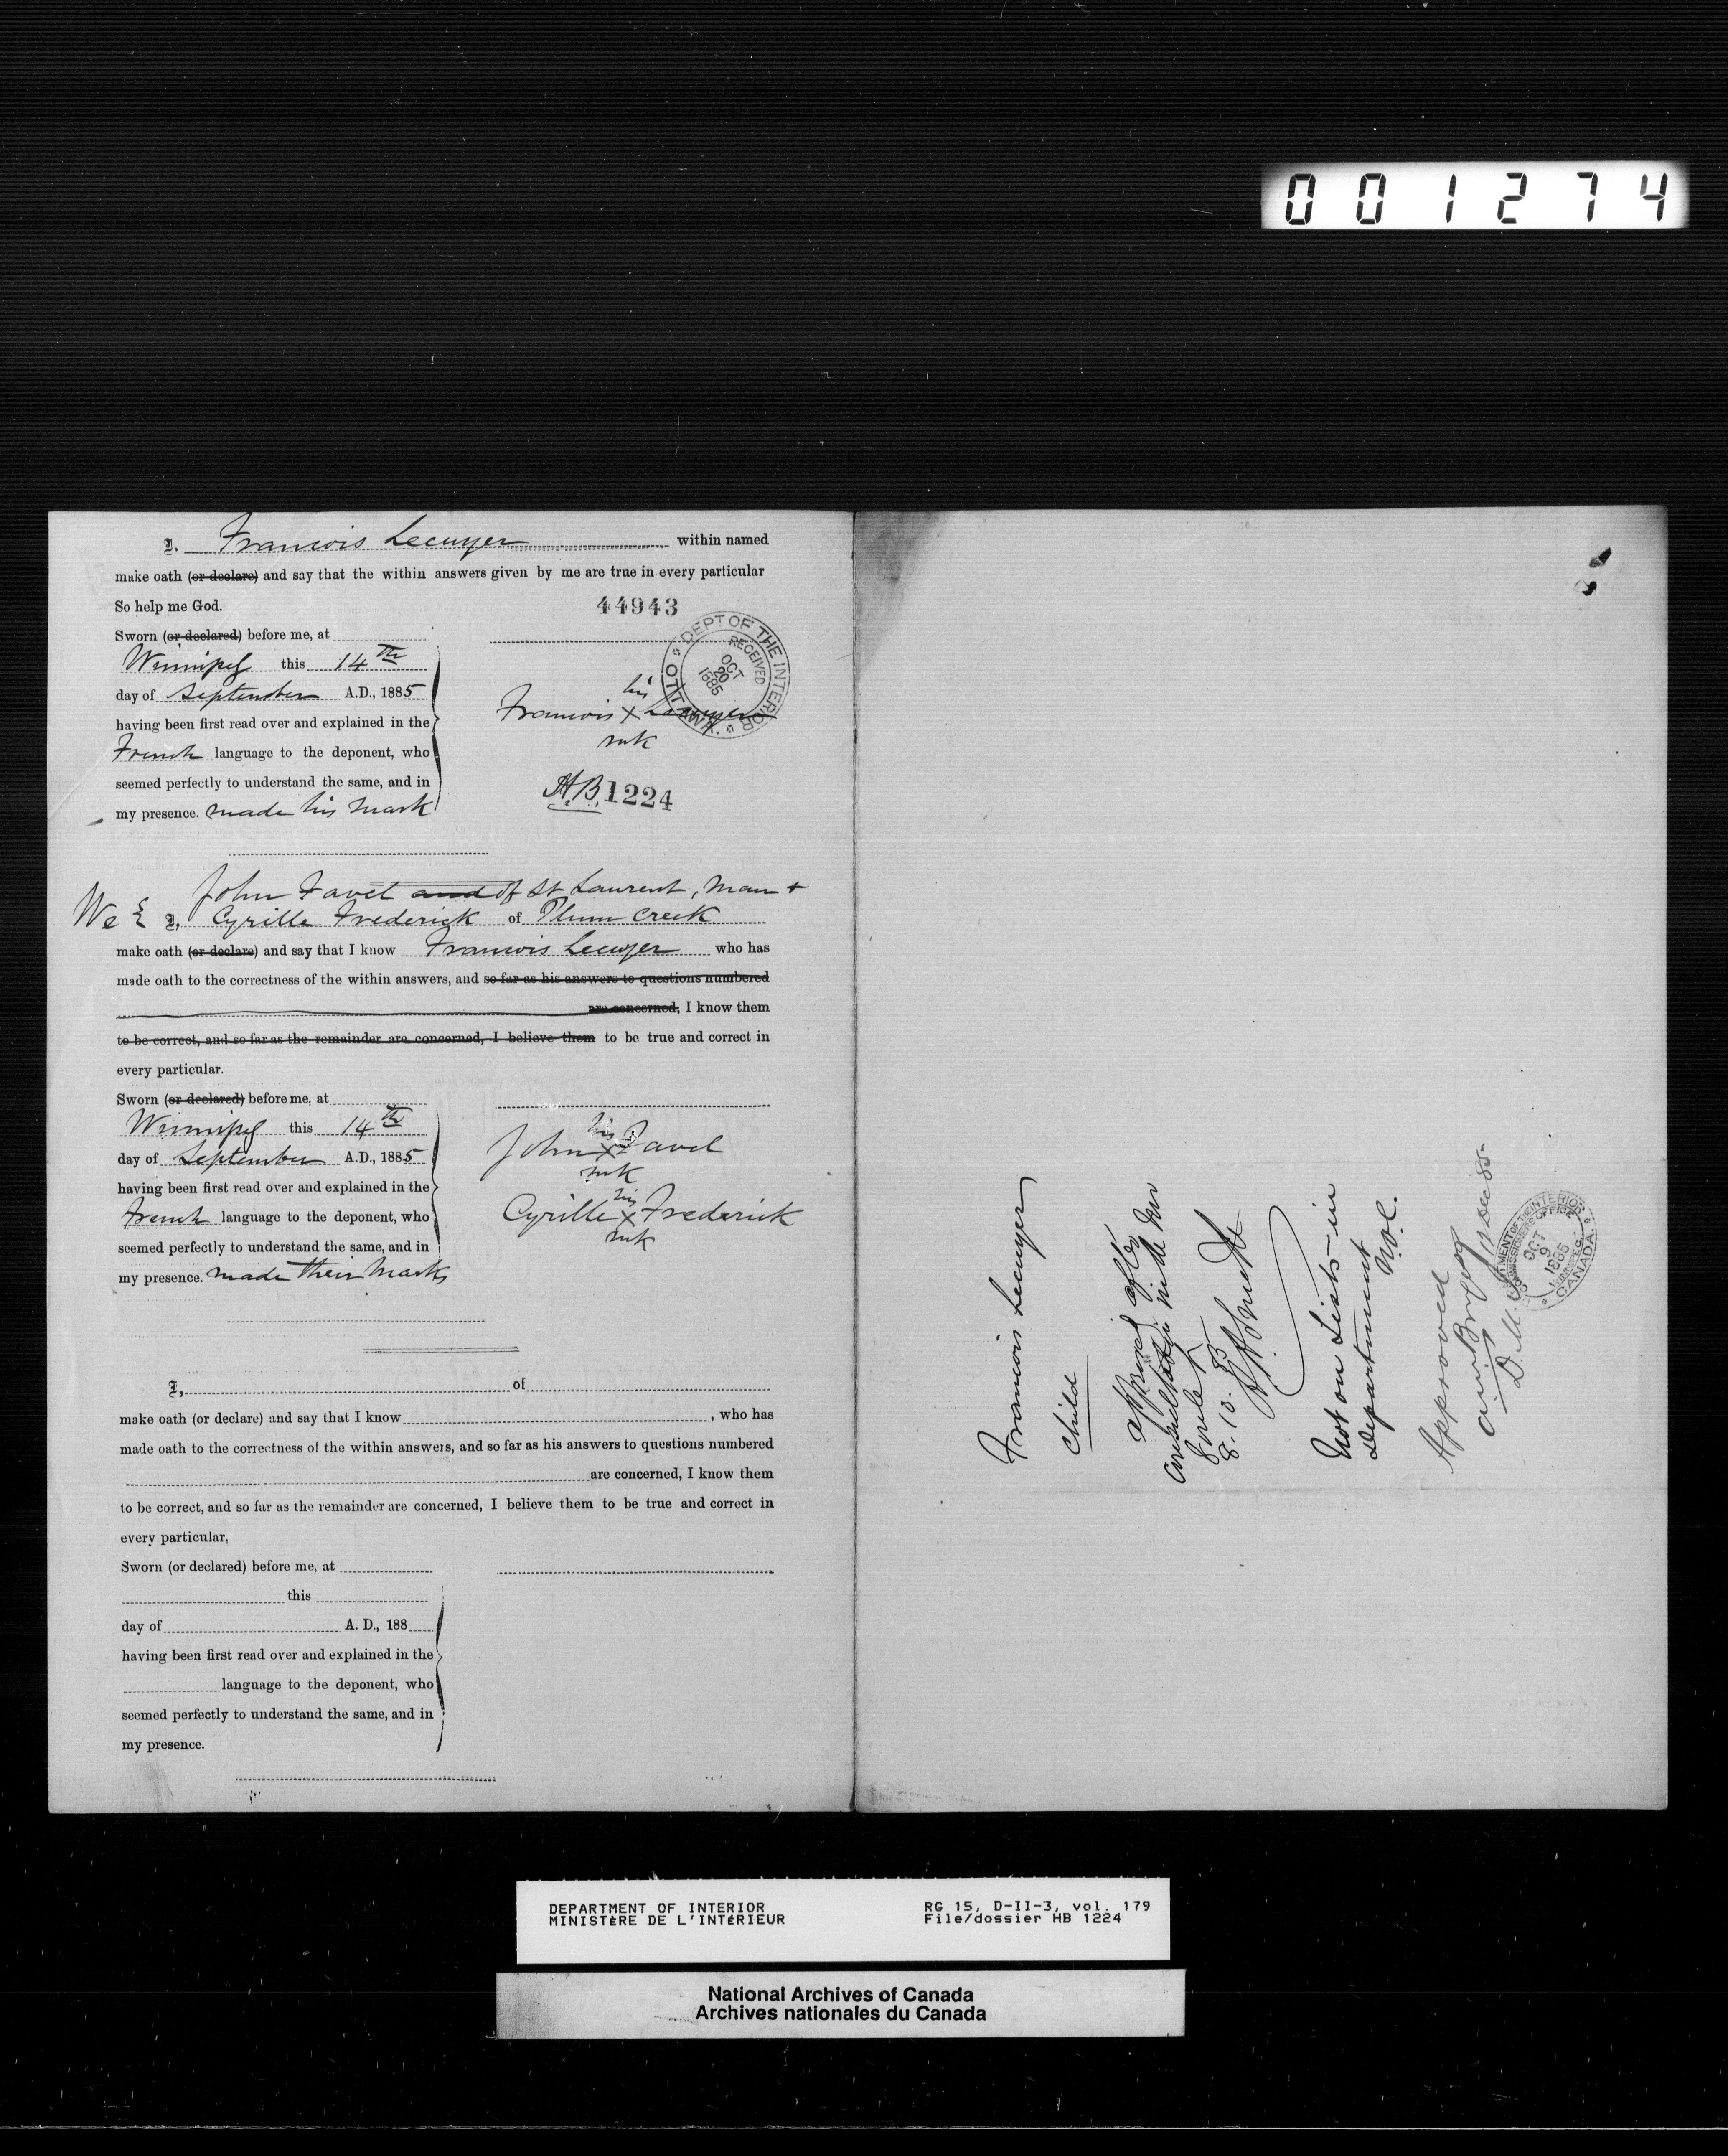 001274
I, Francois Lecuyer within named
make oath (or declare) and say that the within answers given by me are true in every particular
So help me God.
44943
Sworn (or declared) before me, at
Winnipeg this 14th
day of September A.D., 1885
having been first read over and explained in the
French language to the deponent, who
seemed perfectly to understand the same, and in
my presence. made his mark
DEPT OF THE INTERIOR
RECEIVED
OCT
20
1885
OTTAWA.
his
Francois X Lecuyer
mk
H.B. 1224
John Favel and of St Laurent, Man +
We I, Cyrille Frederick of Plum Creek
make oath (or declare) and say that I know Francois Lecuyer who has
made oath to the correctness of the within answers, and so far as his answers to questions numbered
are concerned, I know them
to be correct, and so far as the remainder are concerned, I believe them to be true and correct in
every particular.
Sworn (or declared) before me, at
Winnipeg this 14th
day of September A.D., 1885
having been first read over and explained in the
French language to the deponent, who
seemed perfectly to understand the same, and in
my presence. made their marks
his
John X Favel
mk
his
Cyrille X Frederick
mk
I, of
make oath (or declare) and say that I know , who has
made oath to the correctness of the within answers, and so far as his answers to questions numbered
are concerned, I know them
to be correct, and so far as the remainder are concerned, I believe them to be true and correct in
every particular,
Sworn (or declared) before me, at
this
day of A. D., 188
having been first read over and explained in the
language to the deponent, who
seemed perfectly to understand the same, and in
my presence.
Francois Lecuyer
Child
approved after
consultation with Mr
8. 10. 85
Not on Lists in
Department
N.O.C.
Approved
A. M. Burgess
D. M.
17 Dec 85
OCT
9
1885
WINNIPEG.
CANADA.
DEPARTMENT OF INTERIOR
MINISTÈRE DE L'INTÉRIEUR
RG 15, D-II-3, vol. 179
File/dossier HB 1224
National Archives of Canada
Archives nationales du Canada